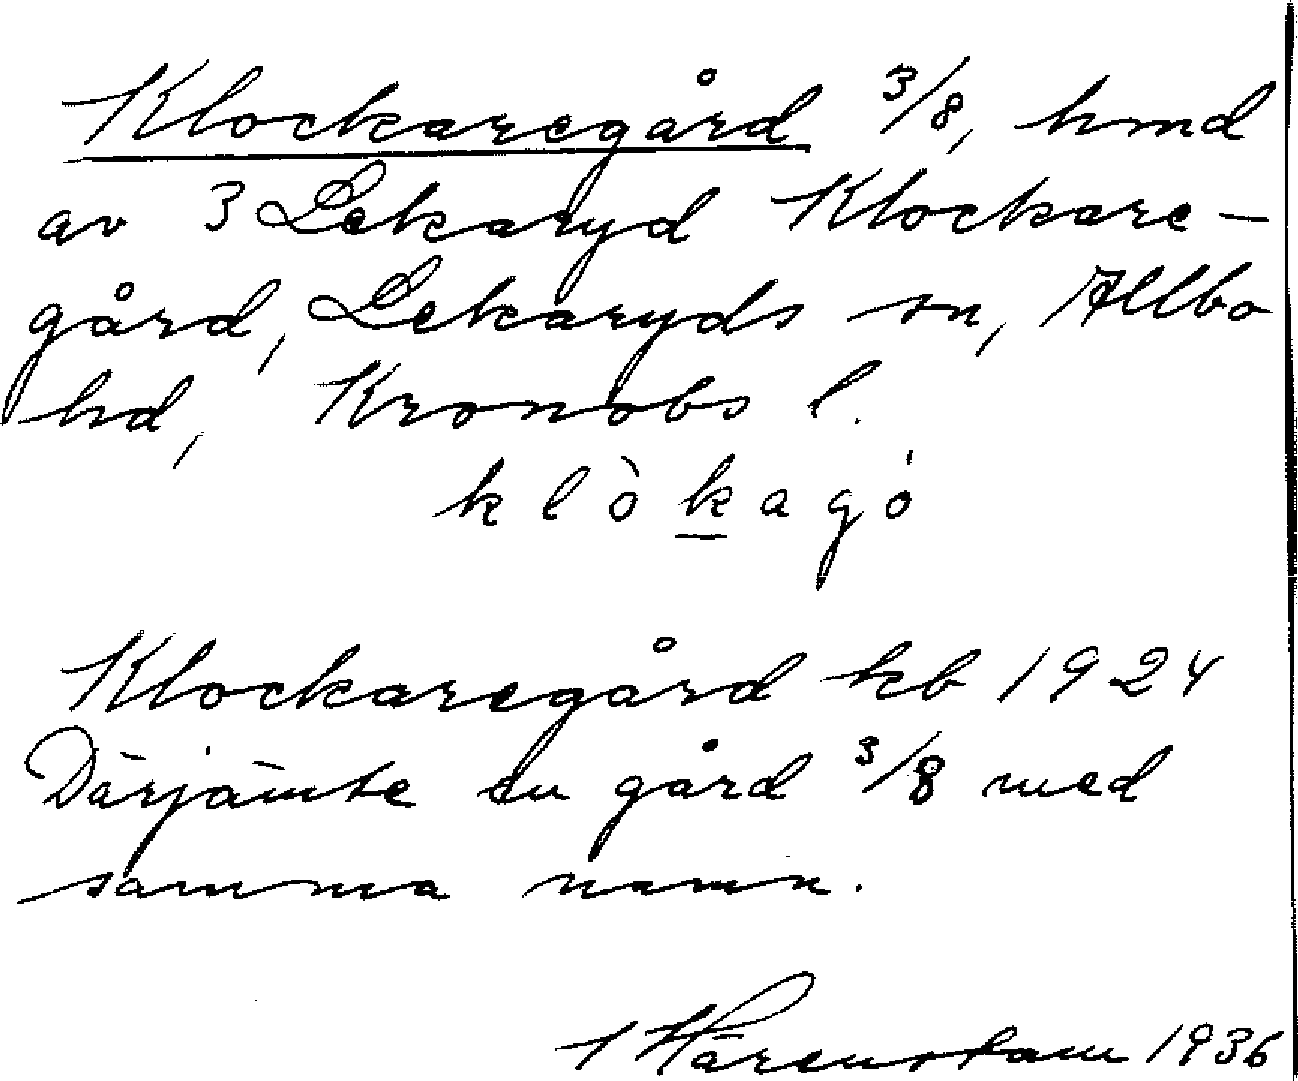 Klockaregård 3/8, hmd
av 3 Lekaryd Klockare-
gård, Lekaryds sn, Allbo
hd, Kronobs l.
klòkagó
Klockaregård kb 1924
Därjämte en gård 3/8 med
samma namn.
Härenstam 1936